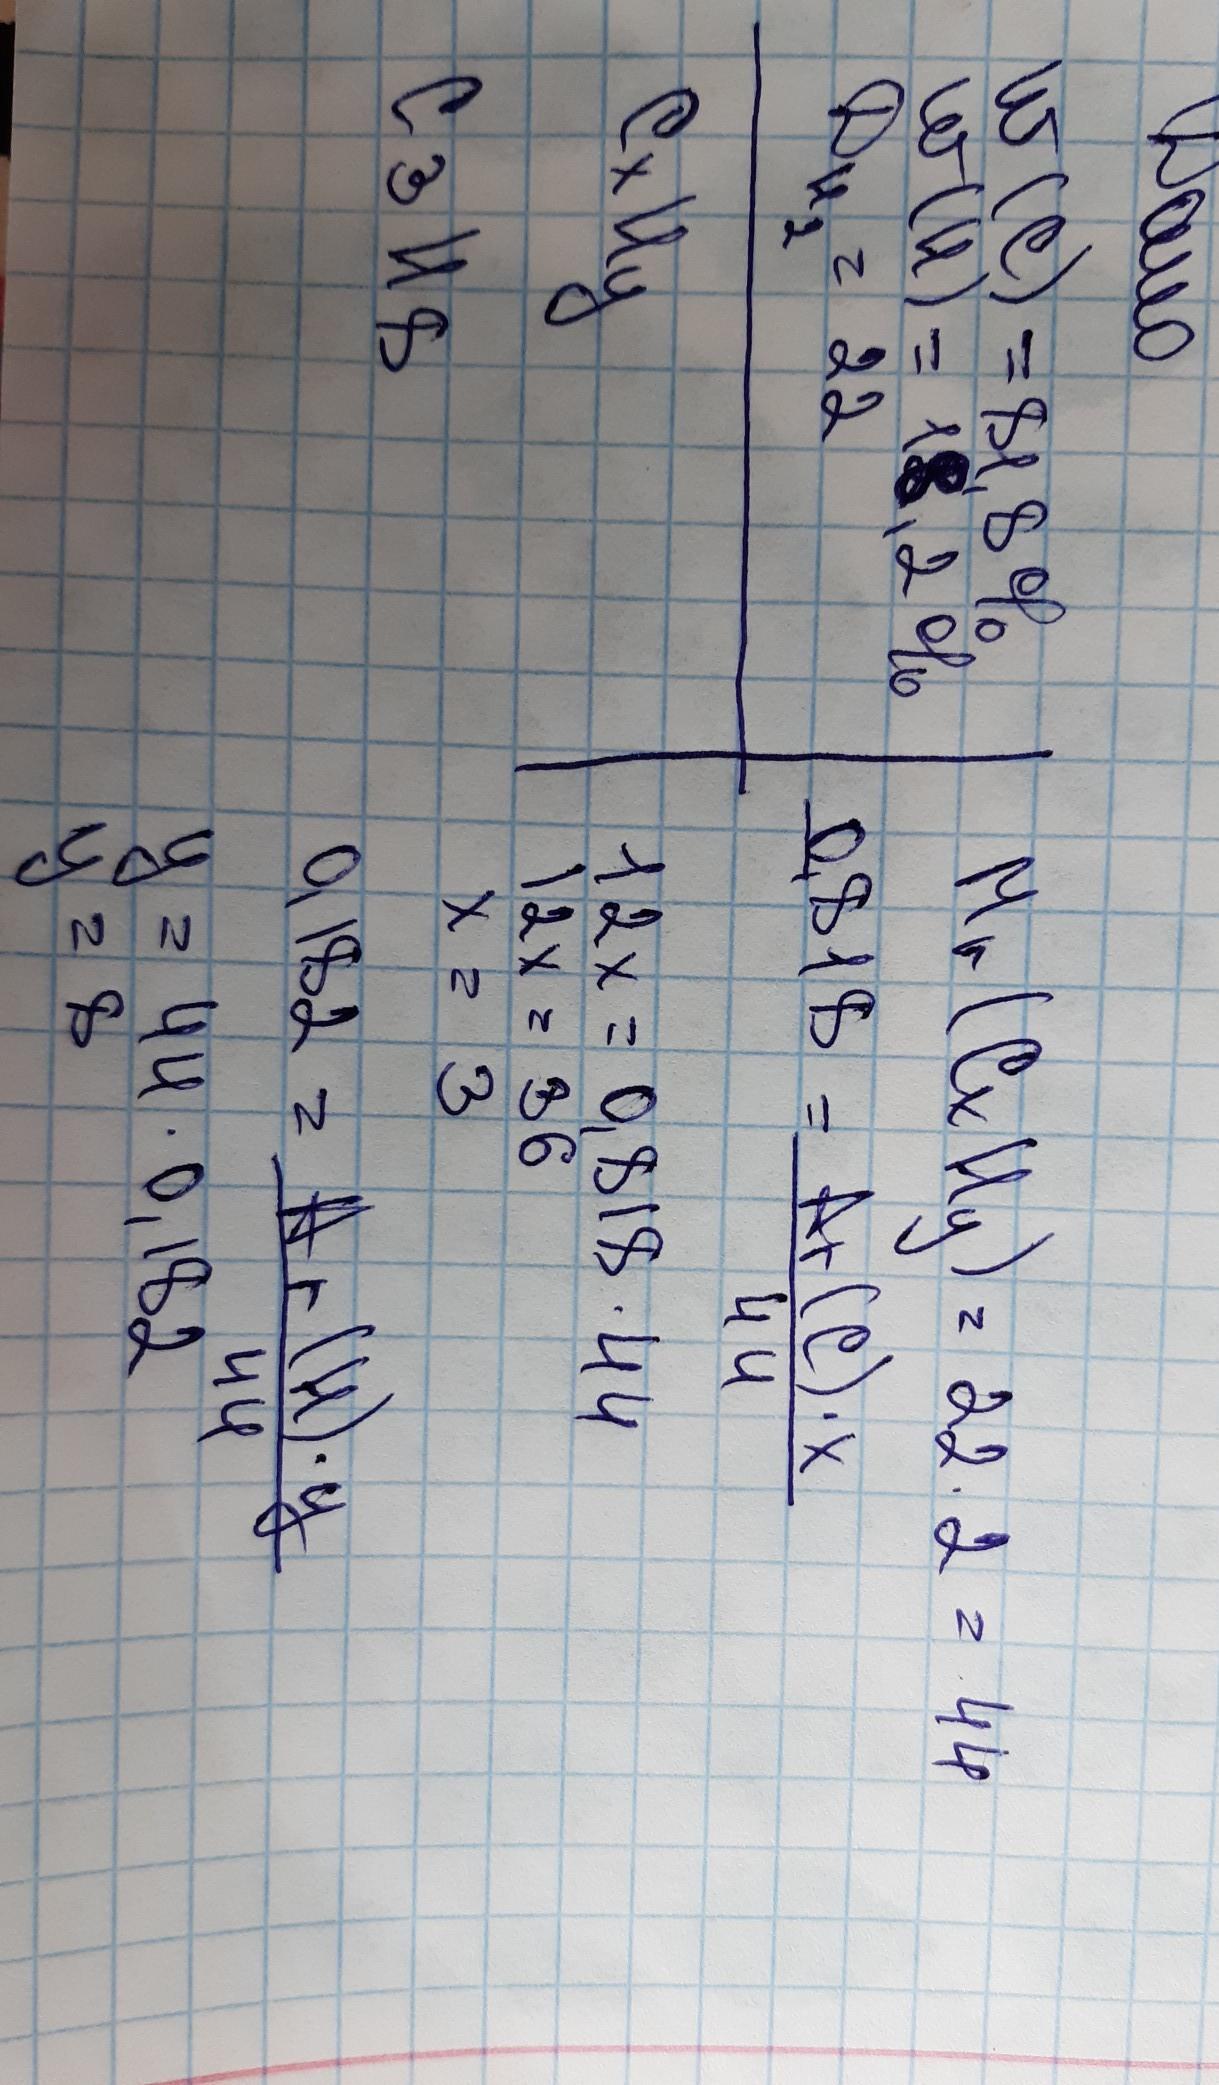 Дано
W(C) = 81,8%
W(H) = 18,2%
D H2 = 22
CxHy
C3H8
Mr(CxHy) = 22·2 = 44
0,818 = Ar(C)·x / 44
12x = 0,818·44
12x = 36
x = 3
0,182 = Ar(H)·y / 44
y = 44·0,182
y = 8